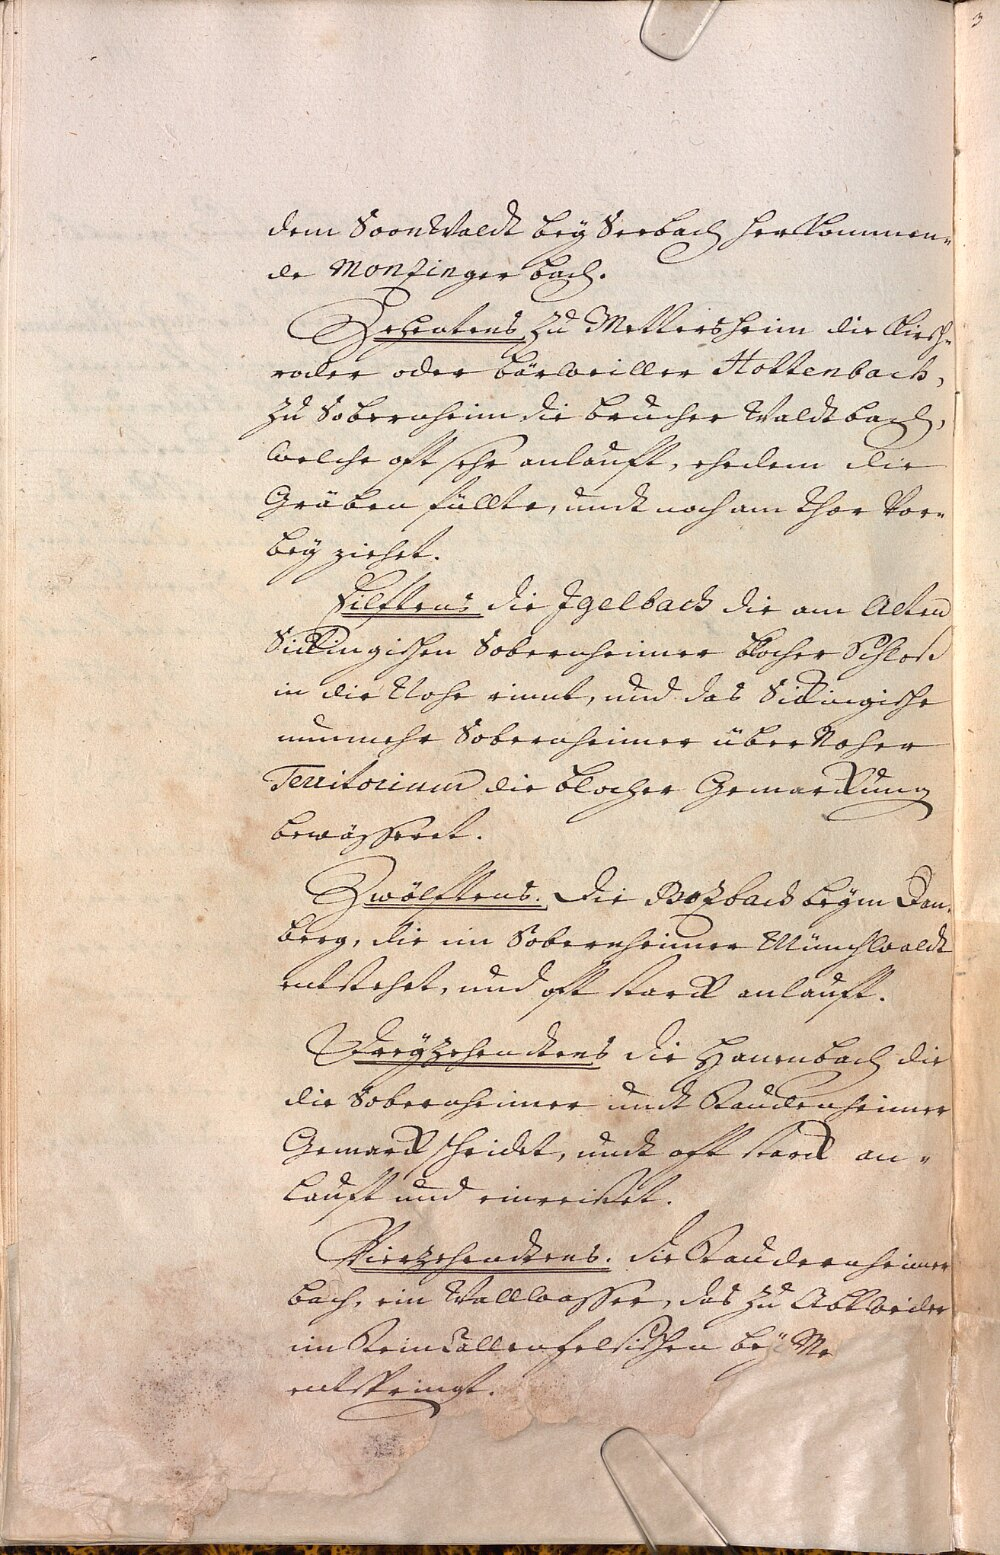 3
dem Soon Waldt bey Seebach herkommen„
de Monzinger bach.
Zehentens zu Mettersheim die Kirsch„
roder oder bärweiller Hottenbach,
zu Sobernheim die bruchen Waldtbach,
welche oft sehr anlauft, ehedem die
Gräben füllte, undt noch am Thor Vor„
bey ziehet.
Eilftens die Igelbach die am Alten
Sickingischen Sobernheimer blocher Schloß
in die Nohe rinnt, und das Sickingische
nunmehr Sobernheimer über Naher
Territorium die blocher Gemarckung
bewäßeret.
Zwölftens. Die Bozbach beym Dan„
berg, die im Sobernheimer Münchwaldt
entstehet, und oft starck anlauft.
Dreyzehendtens die Hanenbach die
die Sobernheimer undt Staudernheimer
Gemarck scheidet, undt oft starck an„
lauft und einreiset.
Vierzehendtens. die Staudernheimer
bach, ein Wallwasser, das zu Abtweiler
im Steinkallenfelsischen bey Me
entspringt.